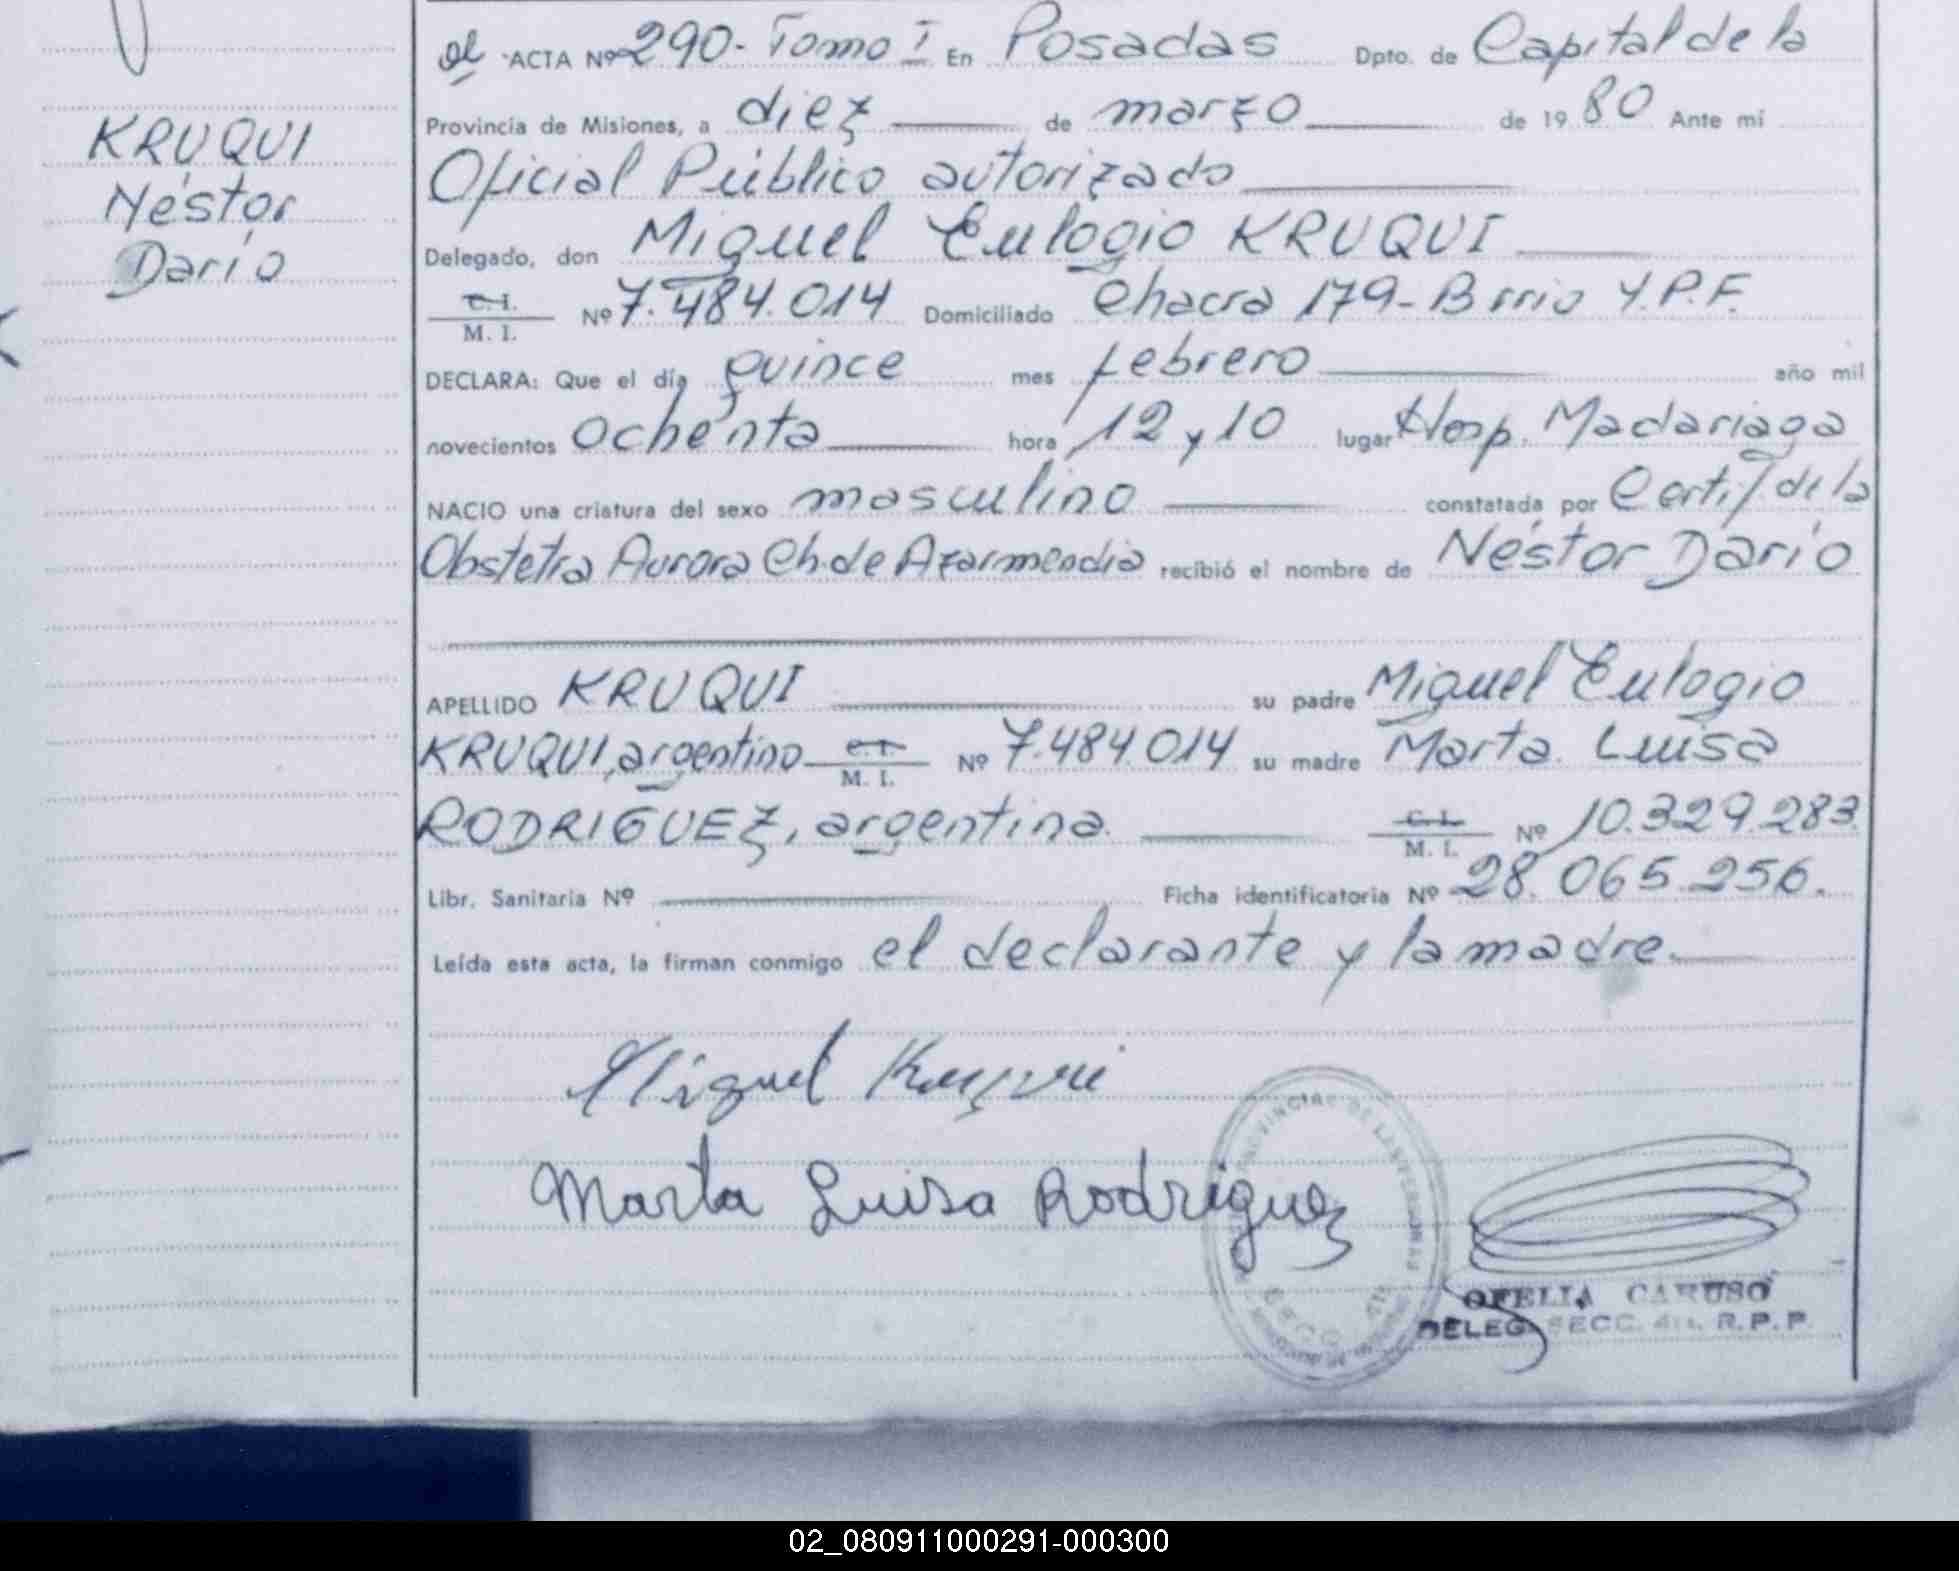 ACTA Nº 290- Tomo I En Posadas Dpto. de Capital de la
KRUQUI
Néstor
Darío
Provincia de Misiones, a diez de marzo de 1980 Ante mí
Oficial Público autorizado
Delegado, don Miguel Eulogio KRUQUI
C.I. / M. I. Nº 7.484.014 Domiciliado Chacra 179- Brrio Y.P.F.
DECLARA: Que el día quince mes febrero año mil
novecientos ochenta hora 12 y 10 lugar Hosp. Madariaga
NACIO una criatura del sexo masculino constatada por Certif. de la
Obstetra Aurora Ch. de Azarmendia recibió el nombre de Néstor Darío
APELLIDO KRUQUI su padre Miguel Eulogio
KRUQUI, argentino C.I. / M. I. Nº 7.484.014 su madre Marta Luisa
RODRIGUEZ, argentina. C.I. / M. I. Nº 10.329.283
Libr. Sanitaria Nº Ficha identificatoria Nº 28.065.256.
Leída esta acta, la firman conmigo el declarante y la madre.
Miguel Kruqui
Marta Luisa Rodriguez
OFELIA CARUSO
DELEG. SECC. 4a. R.P.P.
02_080911000291-000300